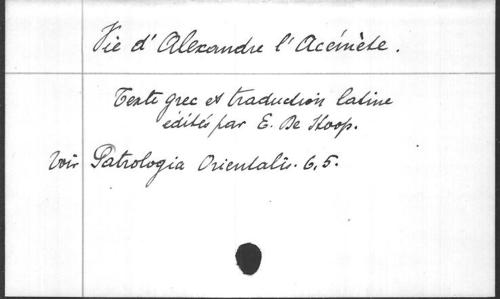 Vie d'Alexandre l'Acémète.
Texte grec et traduction latine
édités par E. De Stoop.
Voir Patrologia Orientalis. 6,5.